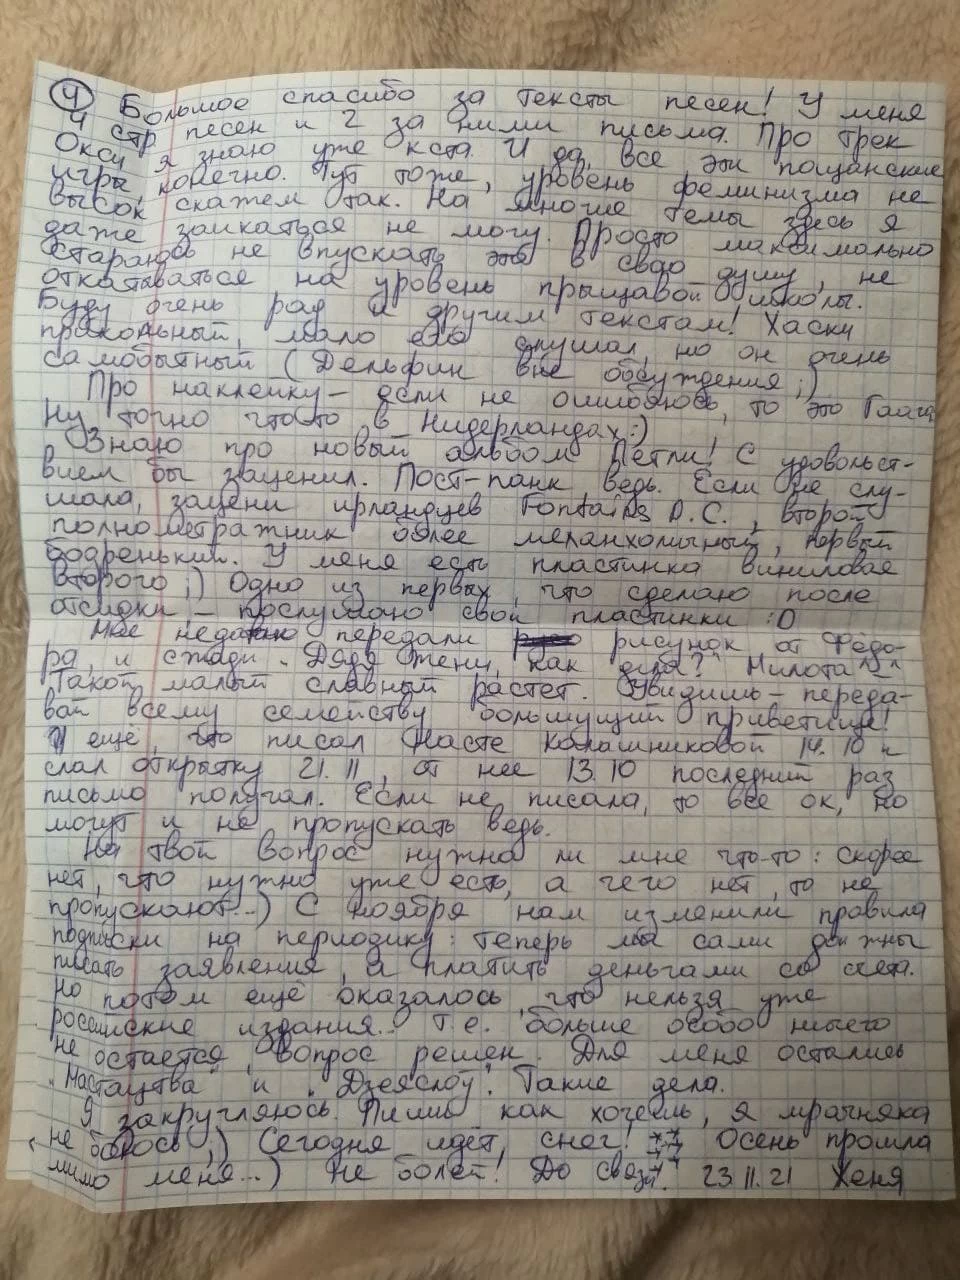 ④ Большое спасибо за тексты песен! У меня
4 стр песен и 2 за ними письма. Про трек
Оксу я знаю уже кста. И да, все эти пацанские
игры, конечно. Тут тоже, уровень феминизма не
высок, скажем так. На многие темы здесь я
даже заикаться не могу. Просто максимально
стараюсь не впускать это в свою душу, не
откатываться на уровень прыщавой школы.
Буду очень рад и другим текстам! Хаски
прикольный, мало его слушал, но он очень
самобытный (Дельфин вне обсуждения ;)
Про наклейку – если не ошибаюсь, то это Гаага
Ну точно что-то в Нидерландах :)
Знаю про новый альбом Петли! С удовольст-
вием бы заценил. Пост-панк ведь. Если не слу-
шала, зацени ирландцев Fontaines D.C., второй
полнометражник более меланхоличный, первый
бодренький. У меня есть пластинка виниловая
второго ;) Одно из первых, что сделаю после
отсидки – послушаю свои пластинки :D
Мне недавно передали рисунок от Фёдо-
ра, и сзади „Дядя Женя, как дела?" Милота ^^
Такой малый славный растет. Увидишь – переда-
вай всему семейству большущий приветище!
И ещё, что писал Насте Калашниковой 14.10 и
слал открытку 21.11, от нее 13.10 последний раз
письмо получал. Если не писала, то все ок, но
могут и не пропускать ведь.
На твой вопрос нужно ли мне что-то: скорее
нет, что нужно уже есть, а чего нет, то не
пропускают...) С ноября нам изменили правила
подписки на периодику: теперь мы сами должны
писать заявления, а платить деньгами со счета.
Но потом ещё оказалось, что нельзя уже
российские издания... Т.е. больше особо ничего
не остается, вопрос решен. Для меня остались
„Мастацтва" и „Дзеяслоў". Такие дела.
Я закругляюсь. Пиши как хочешь, я мрачняка
не боюсь ;) Сегодня идёт снег! Осень прошла
мимо меня...) Не болей! До связи. 23.11.21 Женя